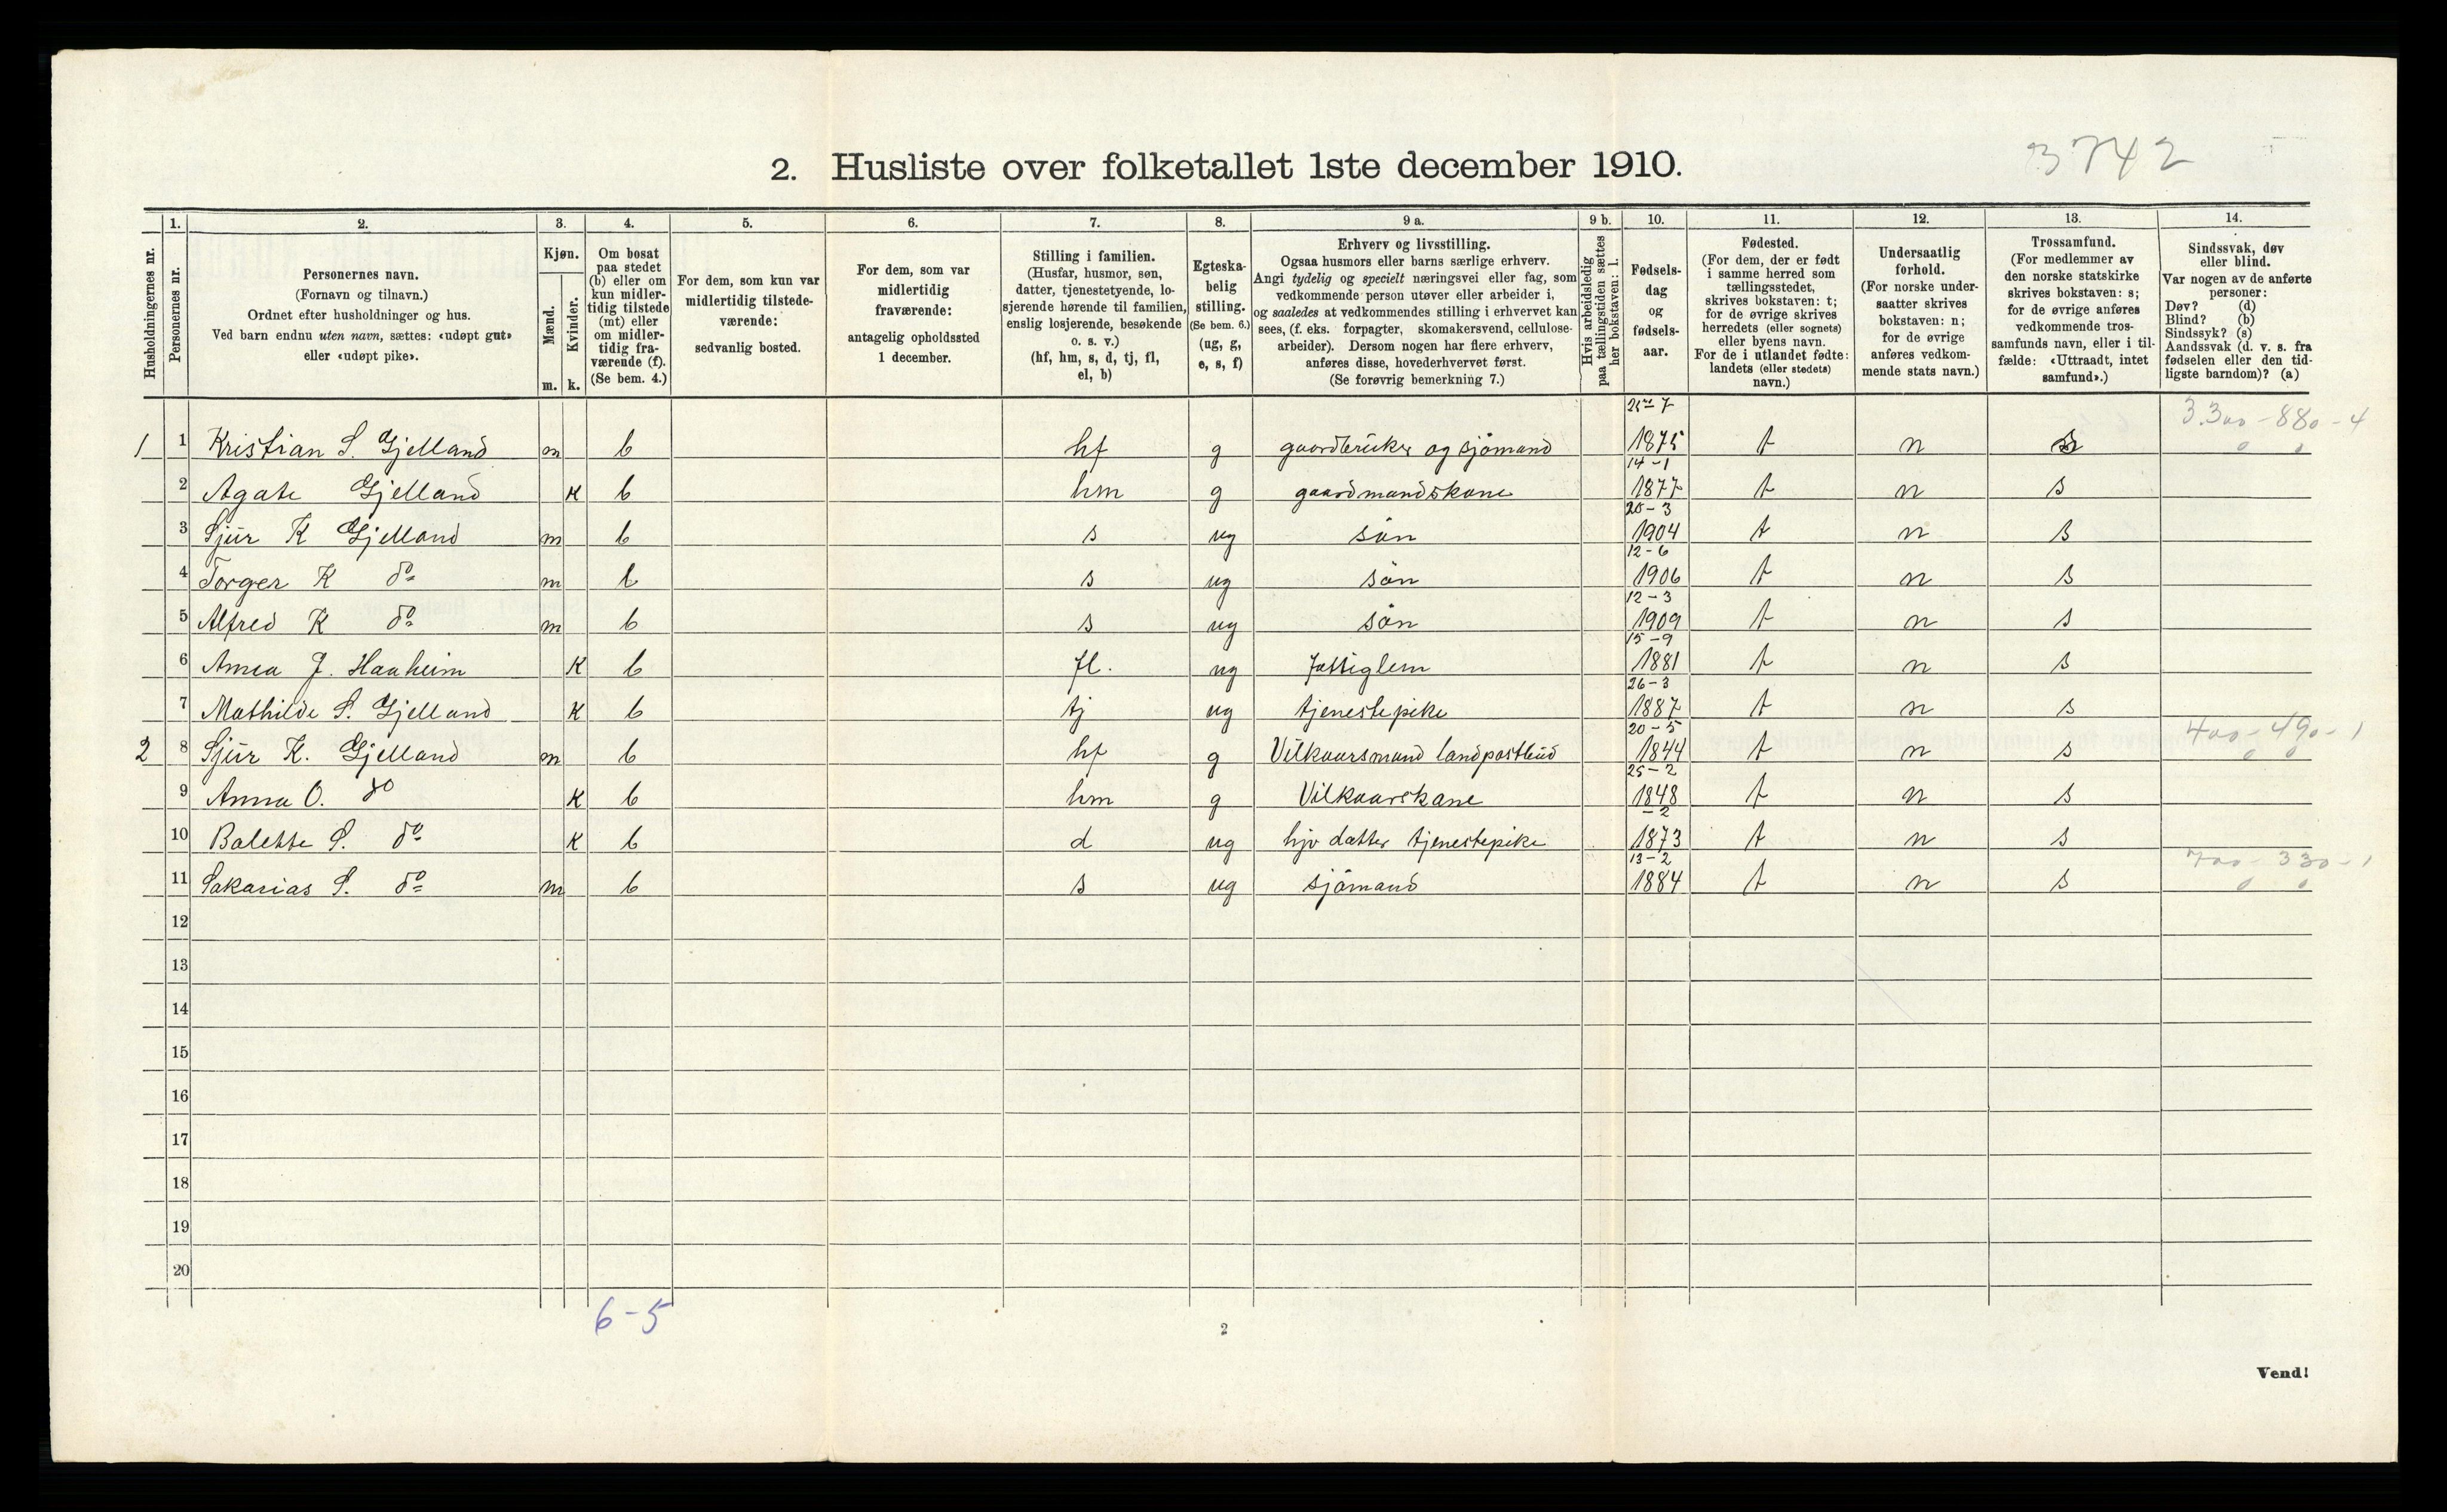 3742
2. Husliste over folketallet 1ste december 1910.
1. 2. 3. 4. 5. 6. 7. 8. 9 a. 9 b. 10. 11. 12. 13. 14.
Husholdningernes nr.
Personernes nr.
Personernes navn.
(Fornavn og tilnavn.)
Ordnet efter husholdninger og hus.
Ved barn endnu uten navn, sættes: «udøpt gut»
eller «udøpt pike».
Kjøn.
Mænd.
Kvinder.
m. k.
Om bosat
paa stedet
(b) eller om
kun midler-
tidig tilstede
(mt) eller
om midler-
tidig fra-
værende (f).
(Se bem. 4.)
For dem, som kun var
midlertidig tilstede-
værende:
sedvanlig bosted.
For dem, som var
midlertidig
fraværende:
antagelig opholdssted
1 december.
Stilling i familien.
(Husfar, husmor, søn,
datter, tjenestetyende, lo-
sjerende hørende til familien,
enslig losjerende, besøkende
o. s. v.)
(hf, hm, s, d, tj, fl,
el, b)
Egteska-
belig
stilling.
(Se bem. 6.)
(ug, g,
e, s, f)
Erhverv og livsstilling.
Ogsaa husmors eller barns særlige erhverv.
Angi tydelig og specielt næringsvei eller fag, som
vedkommende person utøver eller arbeider i,
og saaledes at vedkommendes stilling i erhvervet kan
sees, (f. eks. forpagter, skomakersvend, cellulose-
arbeider). Dersom nogen har flere erhverv,
anføres disse, hovederhvervet først.
(Se forøvrig bemerkning 7.)
Hvis arbeidsledig
paa tællingstiden sættes
her bokstaven: l.
Fødsels-
dag
og
fødsels-
aar.
Fødested.
(For dem, der er født
i samme herred som
tællingsstedet,
skrives bokstaven: t;
for de øvrige skrives
herredets (eller sognets)
eller byens navn.
For de i utlandet fødte:
landets (eller stedets)
navn.)
Undersaatlig
forhold.
(For norske under-
saatter skrives
bokstaven: n;
for de øvrige
anføres vedkom-
mende stats navn.)
Trossamfund.
(For medlemmer av
den norske statskirke
skrives bokstaven: s;
for de øvrige anføres
vedkommende tros-
samfunds navn, eller i til-
fælde: «Uttraadt, intet
samfund».)
Sindssvak, døv
eller blind.
Var nogen av de anførte
personer:
Døv? (d)
Blind? (b)
Sindssyk? (s)
Aandssvak (d. v. s. fra
fødselen eller den tid-
ligste barndom)? (a)
1 1 Kristian S. Gjelland m b hf g gaardbruker og sjömand 25-7 1875 t n s 3.300-880-4
2 Agate Gjelland K b hm g gaardmandskone 14-1 1877 t n s
3 Sjur K Gjelland m b s ug sön 20-3 1904 t n s
4 Torger K do m b s ug sön 12-6 1906 t n s
5 Alfred K do m b s ug sön 12-3 1909 t n s
6 Anna J. Haaheim K b fl. ug fattiglem 15-9 1881 t n s
7 Mathilde S. Gjelland K b tj ug tjenestepike 26-3 1887 t n s
2 8 Sjur K. Gjelland m b hf g Vilkaarsmand landpostbud 20-5 1844 t n s 400-490-1
9 Anna O. do K b hm g Vilkaarskone 25-2 1848 t n s
10 Bolette S. do K b d ug hjv datter tjenestepike -2 1873 t n s
11 Sakarias S. do m b s ug sjömand 13-2 1884 t n s 700-330-1
12
13
14
15
16
17
18
19
20
6-5
2
Vend!